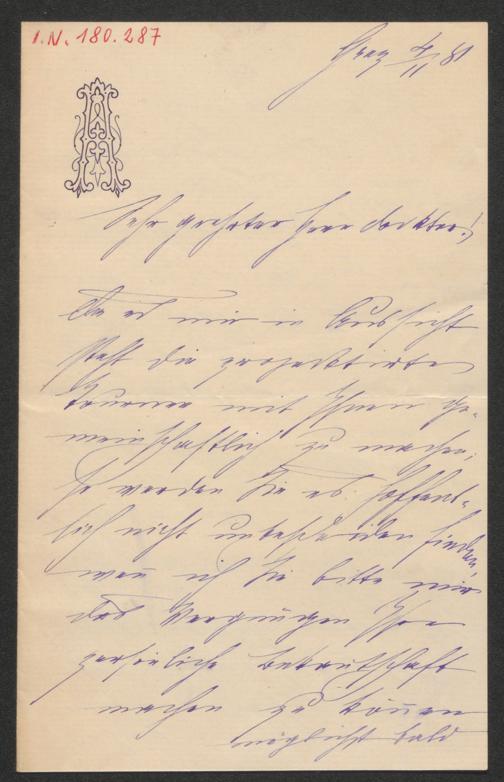 I.N. 180.287
Graz 4/11 81
A
Sehr geehrter Herr Docktor!
Da es mir in Aussicht
steht die projecktirte
Tournee mit Ihnen ge-
meinschaftlich zu machen,
so werden Sie es hoffent-
lich nicht unbescheiden finden,
wen̅ ich Sie bitte mir
das Vergnügen Ihre
persönliche Bekan̅tschaft
machen zu kön̅en
möglichst bald